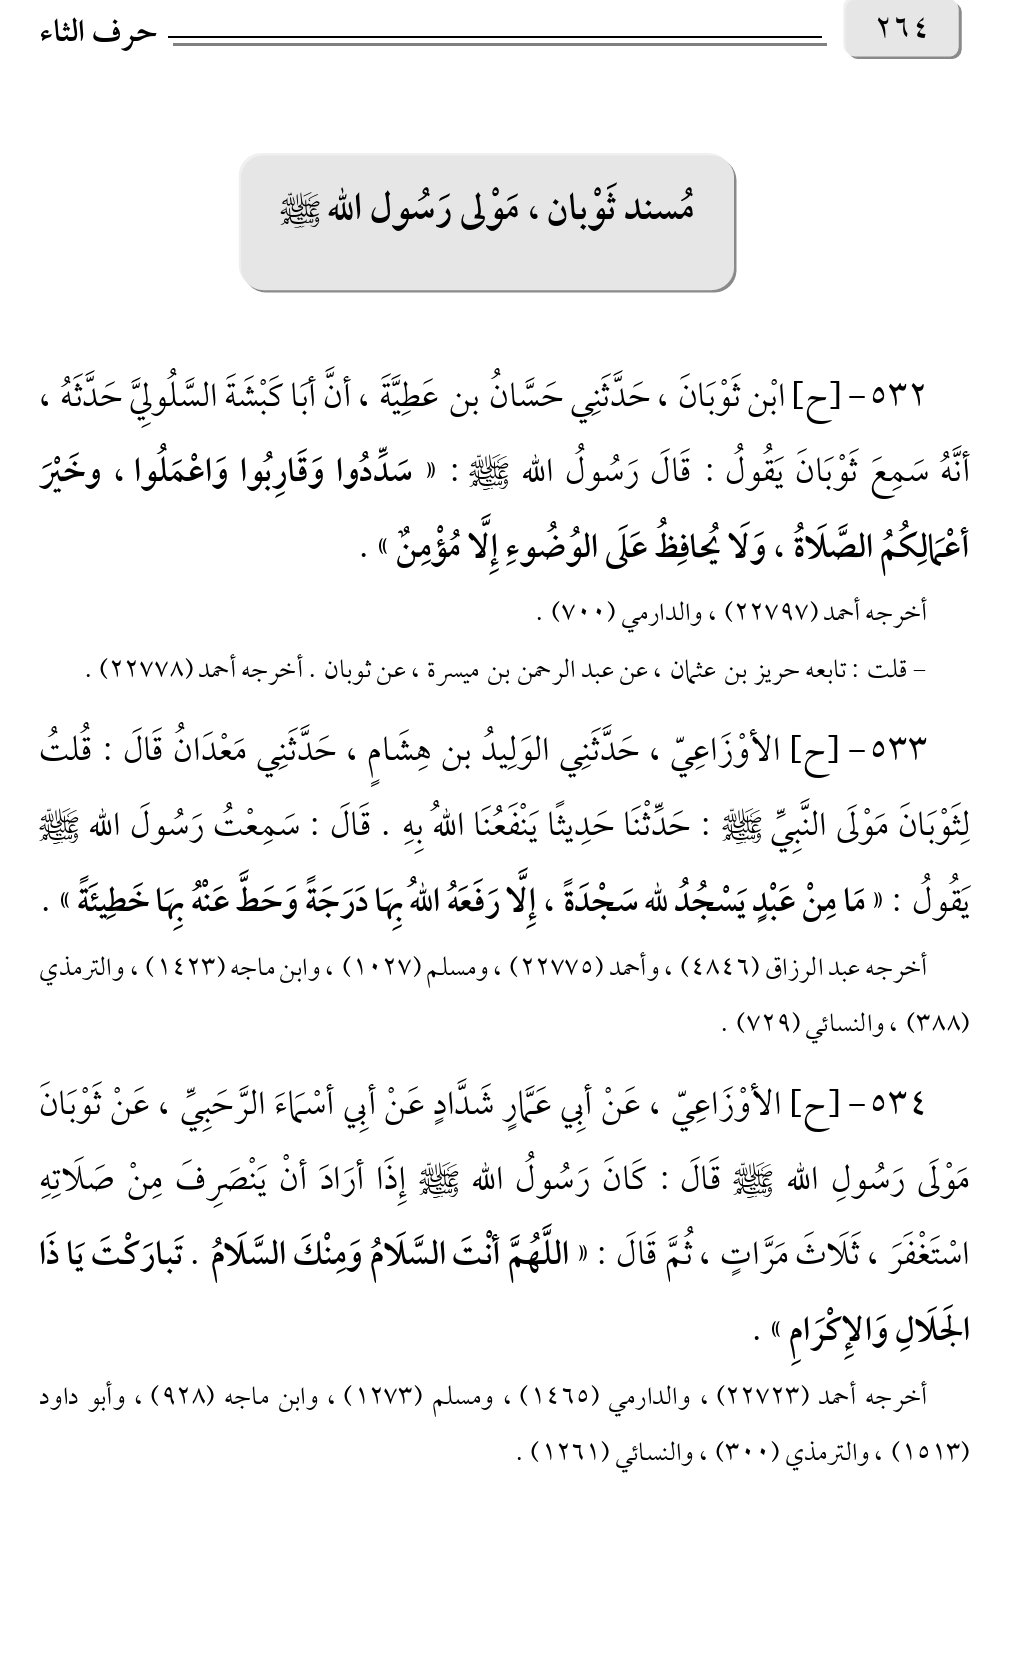 ٢٦٤
حرف الثاء
مُسند ثَوْبان ، مَوْلى رَسُول الله ﷺ
٥٣٢- [ح] ابْن ثَوْبَانَ ، حَدَّثَنِي حَسَّانُ بن عَطِيَّةَ ، أنَّ أبَا كَبْشَةَ السَّلُوليَّ حَدَّثَهُ ،
أنَّهُ سَمِعَ ثَوْبَانَ يَقُولُ : قَالَ رَسُولُ الله ﷺ : « سَدِّدُوا وَقَارِبُوا وَاعْمَلُوا ، وخَيْرَ
أعْمَالِكُمُ الصَّلَاةُ ، وَلَا يُحافِظُ عَلَى الوُضُوءِ إِلَّا مُؤْمِنٌ » .
أخرجه أحمد (٢٢٧٩٧) ، والدارمي (٧٠٠) .
- قلت : تابعه حريز بن عثمان ، عن عبد الرحمن بن ميسرة ، عن ثوبان . أخرجه أحمد (٢٢٧٧٨) .
٥٣٣- [ح] الأوْزَاعِيّ ، حَدَّثَنِي الوَلِيدُ بن هِشَامٍ ، حَدَّثَنِي مَعْدَانُ قَالَ : قُلتُ
لِثَوْبَانَ مَوْلَى النَّبِيِّ ﷺ : حَدِّثْنَا حَدِيثًا يَنْفَعُنَا اللهُ بِهِ . قَالَ : سَمِعْتُ رَسُولَ الله ﷺ
يَقُولُ : « مَا مِنْ عَبْدٍ يَسْجُدُ لله سَجْدَةً ، إِلَّا رَفَعَهُ اللهُ بِهَا دَرَجَةً وَحَطَّ عَنْهُ بِهَا خَطِيئَةً » .
أخرجه عبد الرزاق (٤٨٤٦) ، وأحمد (٢٢٧٧٥) ، ومسلم (١٠٢٧) ، وابن ماجه (١٤٢٣) ، والترمذي
(٣٨٨) ، والنسائي (٧٢٩) .
٥٣٤- [ح] الأوْزَاعِيّ ، عَنْ أبِي عَمَّارٍ شَدَّادٍ عَنْ أبِي أسْمَاءَ الرَّحَبِيِّ ، عَنْ ثَوْبَانَ
مَوْلَى رَسُولِ الله ﷺ قَالَ : كَانَ رَسُولُ الله ﷺ إِذَا أرَادَ أنْ يَنْصَرِفَ مِنْ صَلَاتِهِ
اسْتَغْفَرَ ، ثَلَاثَ مَرَّاتٍ ، ثُمَّ قَالَ : « اللَّهُمَّ أنْتَ السَّلَامُ وَمِنْكَ السَّلَامُ . تَبارَكْتَ يَا ذَا
الجَلَالِ وَالإِكْرَامِ » .
أخرجه أحمد (٢٢٧٢٣) ، والدارمي (١٤٦٥) ، ومسلم (١٢٧٣) ، وابن ماجه (٩٢٨) ، وأبو داود
(١٥١٣) ، والترمذي (٣٠٠) ، والنسائي (١٢٦١) .